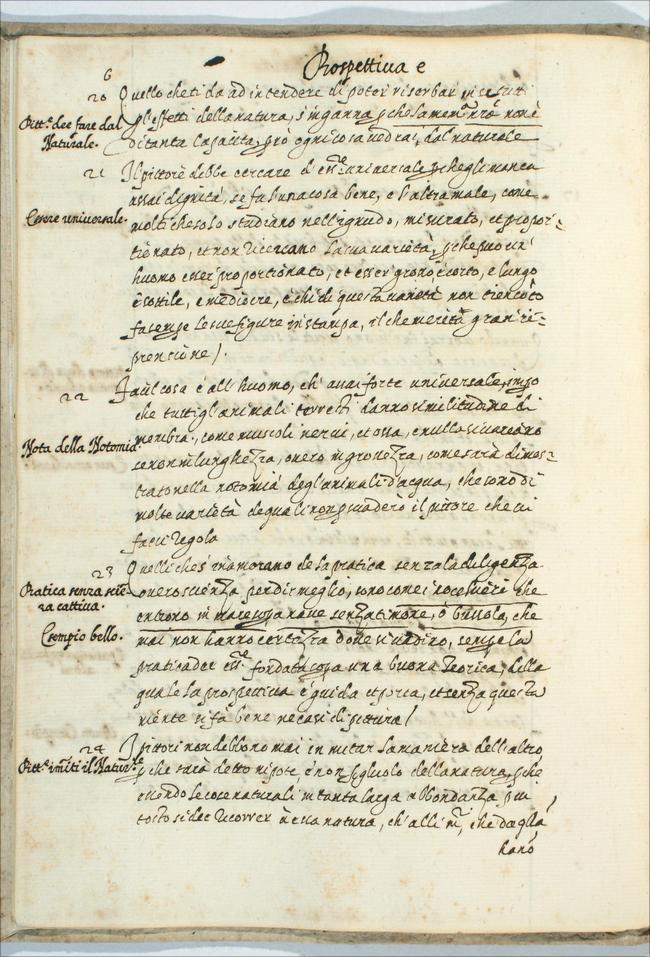 Prospettiua e
6
20 Quello che ti da ad intendere di poter riserbar in se tutti
gl'effetti della natura, s'inganna perche la memoria non è
di tanta capacità, però ogni cosa uedrai dal naturale
Pitt.e dee fare dal
Naturale.
21 Il pittore debbe cercare d'esser uniuersale perche gli manca
assai dignità, se fa una cosa bene, e l'altra male, come
molti che solo studiano nell'ignudo, misurato, et propor-
tionato, et non ricercano la sua uarietà, perche puo un'
huomo esser proportionato, et esser grosso e corto, e lungo
e sottile, e mediocre, e chi di questa uarietà non tien conto
fa sempre le sue figure in stampa, il che merita gran ri-
prensione /.
Essere uniuersale.
22 Facil cosa è all' huomo, ch' sa farsi uniuersale,
che tutti gl'animali terrestri hanno similitudine di
membra, come muscoli nerui, et ossa, e nulla si uariano
se non in lunghezza, ouero in grossezza, come sarà dimos-
trato nella notomia degl'animali d'acqua, che sono di
molte uarietà de quali non persuaderò il pittore che ui
facci regola
Nota della Notomia
23 Quelli che s'inamorano de la pratica senza la diligenza
ouero scienza per dir meglio, sono come i nocchieri che
entrono in mare sopra naue senza timone, ò bussola, che
mai non hanno certezza doue si uadino, sempre la
pratica deu' esser fondata sopra una buona Teorica, della
quale la prospettiua è guida et porta, et senza questa
niente si fa bene ne casi di pittura /
Pratica senza scien-
za cattiua.
Esempio bello.
24 I pittori non debbono mai imitar la maniera dell'altro
perche sarà detto nipote, e non figliuolo della natura, perche
essendo le cose naturali in tanta larga abbondanza più
tosto si dee ricorrer à essa natura, ch' alli m.ri, che da quella
hano
Pitt.e imiti il Natur.le